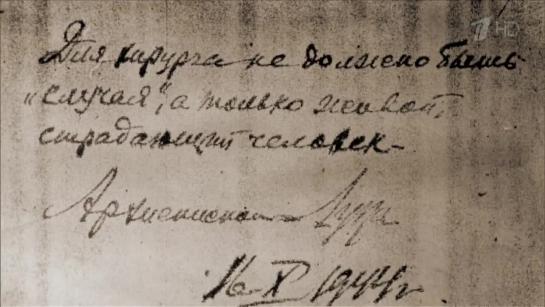 1 HD
Для хирурга не должно быть
„случая“, а только живой,
страдающий человек –
Архиепископ Лука
16 X 1944 г.